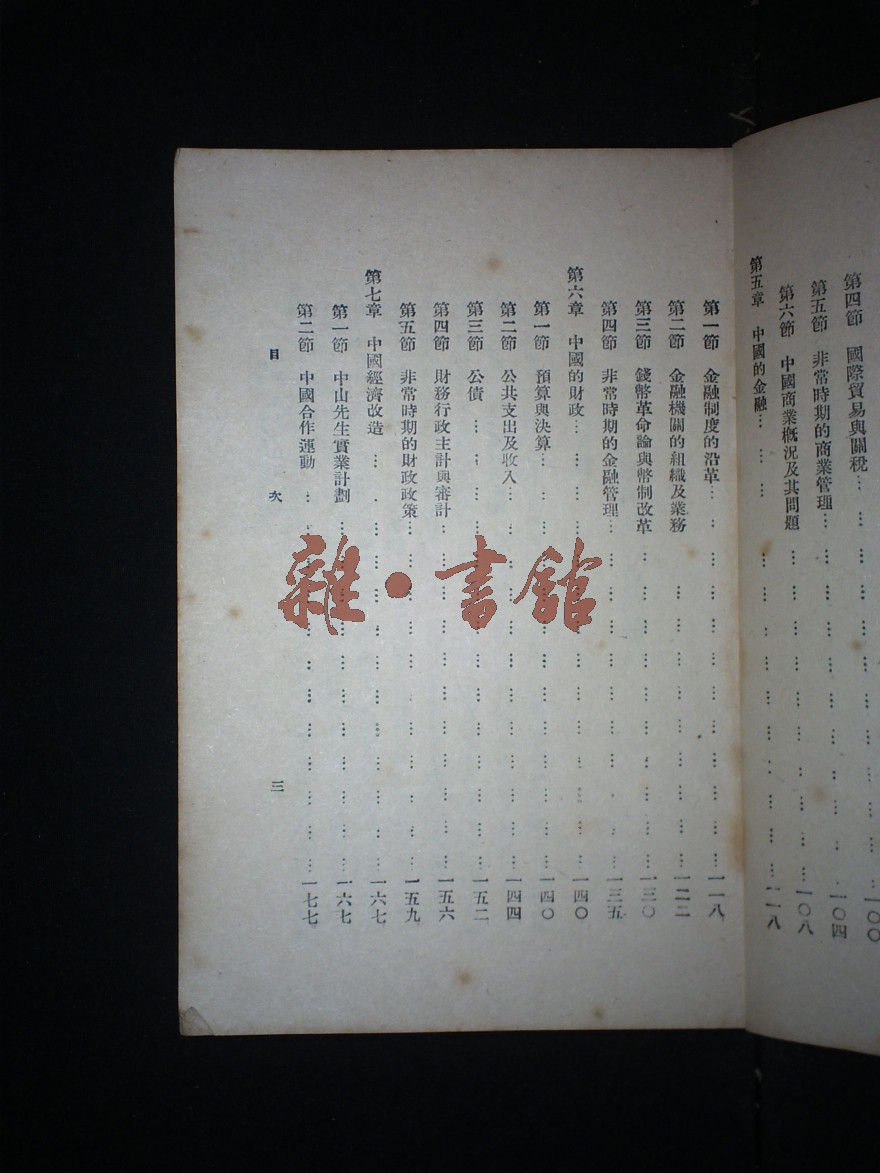 第四節 國際貿易與關稅………一〇〇
第五節 非常時期的商業管理………一〇四
第六節 中國商業概況及其問題………一〇八
第五章 中國的金融………一一八
第一節 金融制度的沿革………一一八
第二節 金融機關的組織及業務………一二二
第三節 錢幣革命論與幣制改革………一三〇
第四節 非常時期的金融管理………一三五
第六章 中國的財政………一四〇
第一節 預算與決算………一四〇
第二節 公共支出及收入………一四四
第三節 公債………一五二
第四節 財務行政主計與審計………一五六
第五節 非常時期的財政政策………一五九
第七章 中國經濟改造………一六七
第一節 中山先生實業計劃………一六七
第二節 中國合作運動………一七七
目 次 三
雜·書館